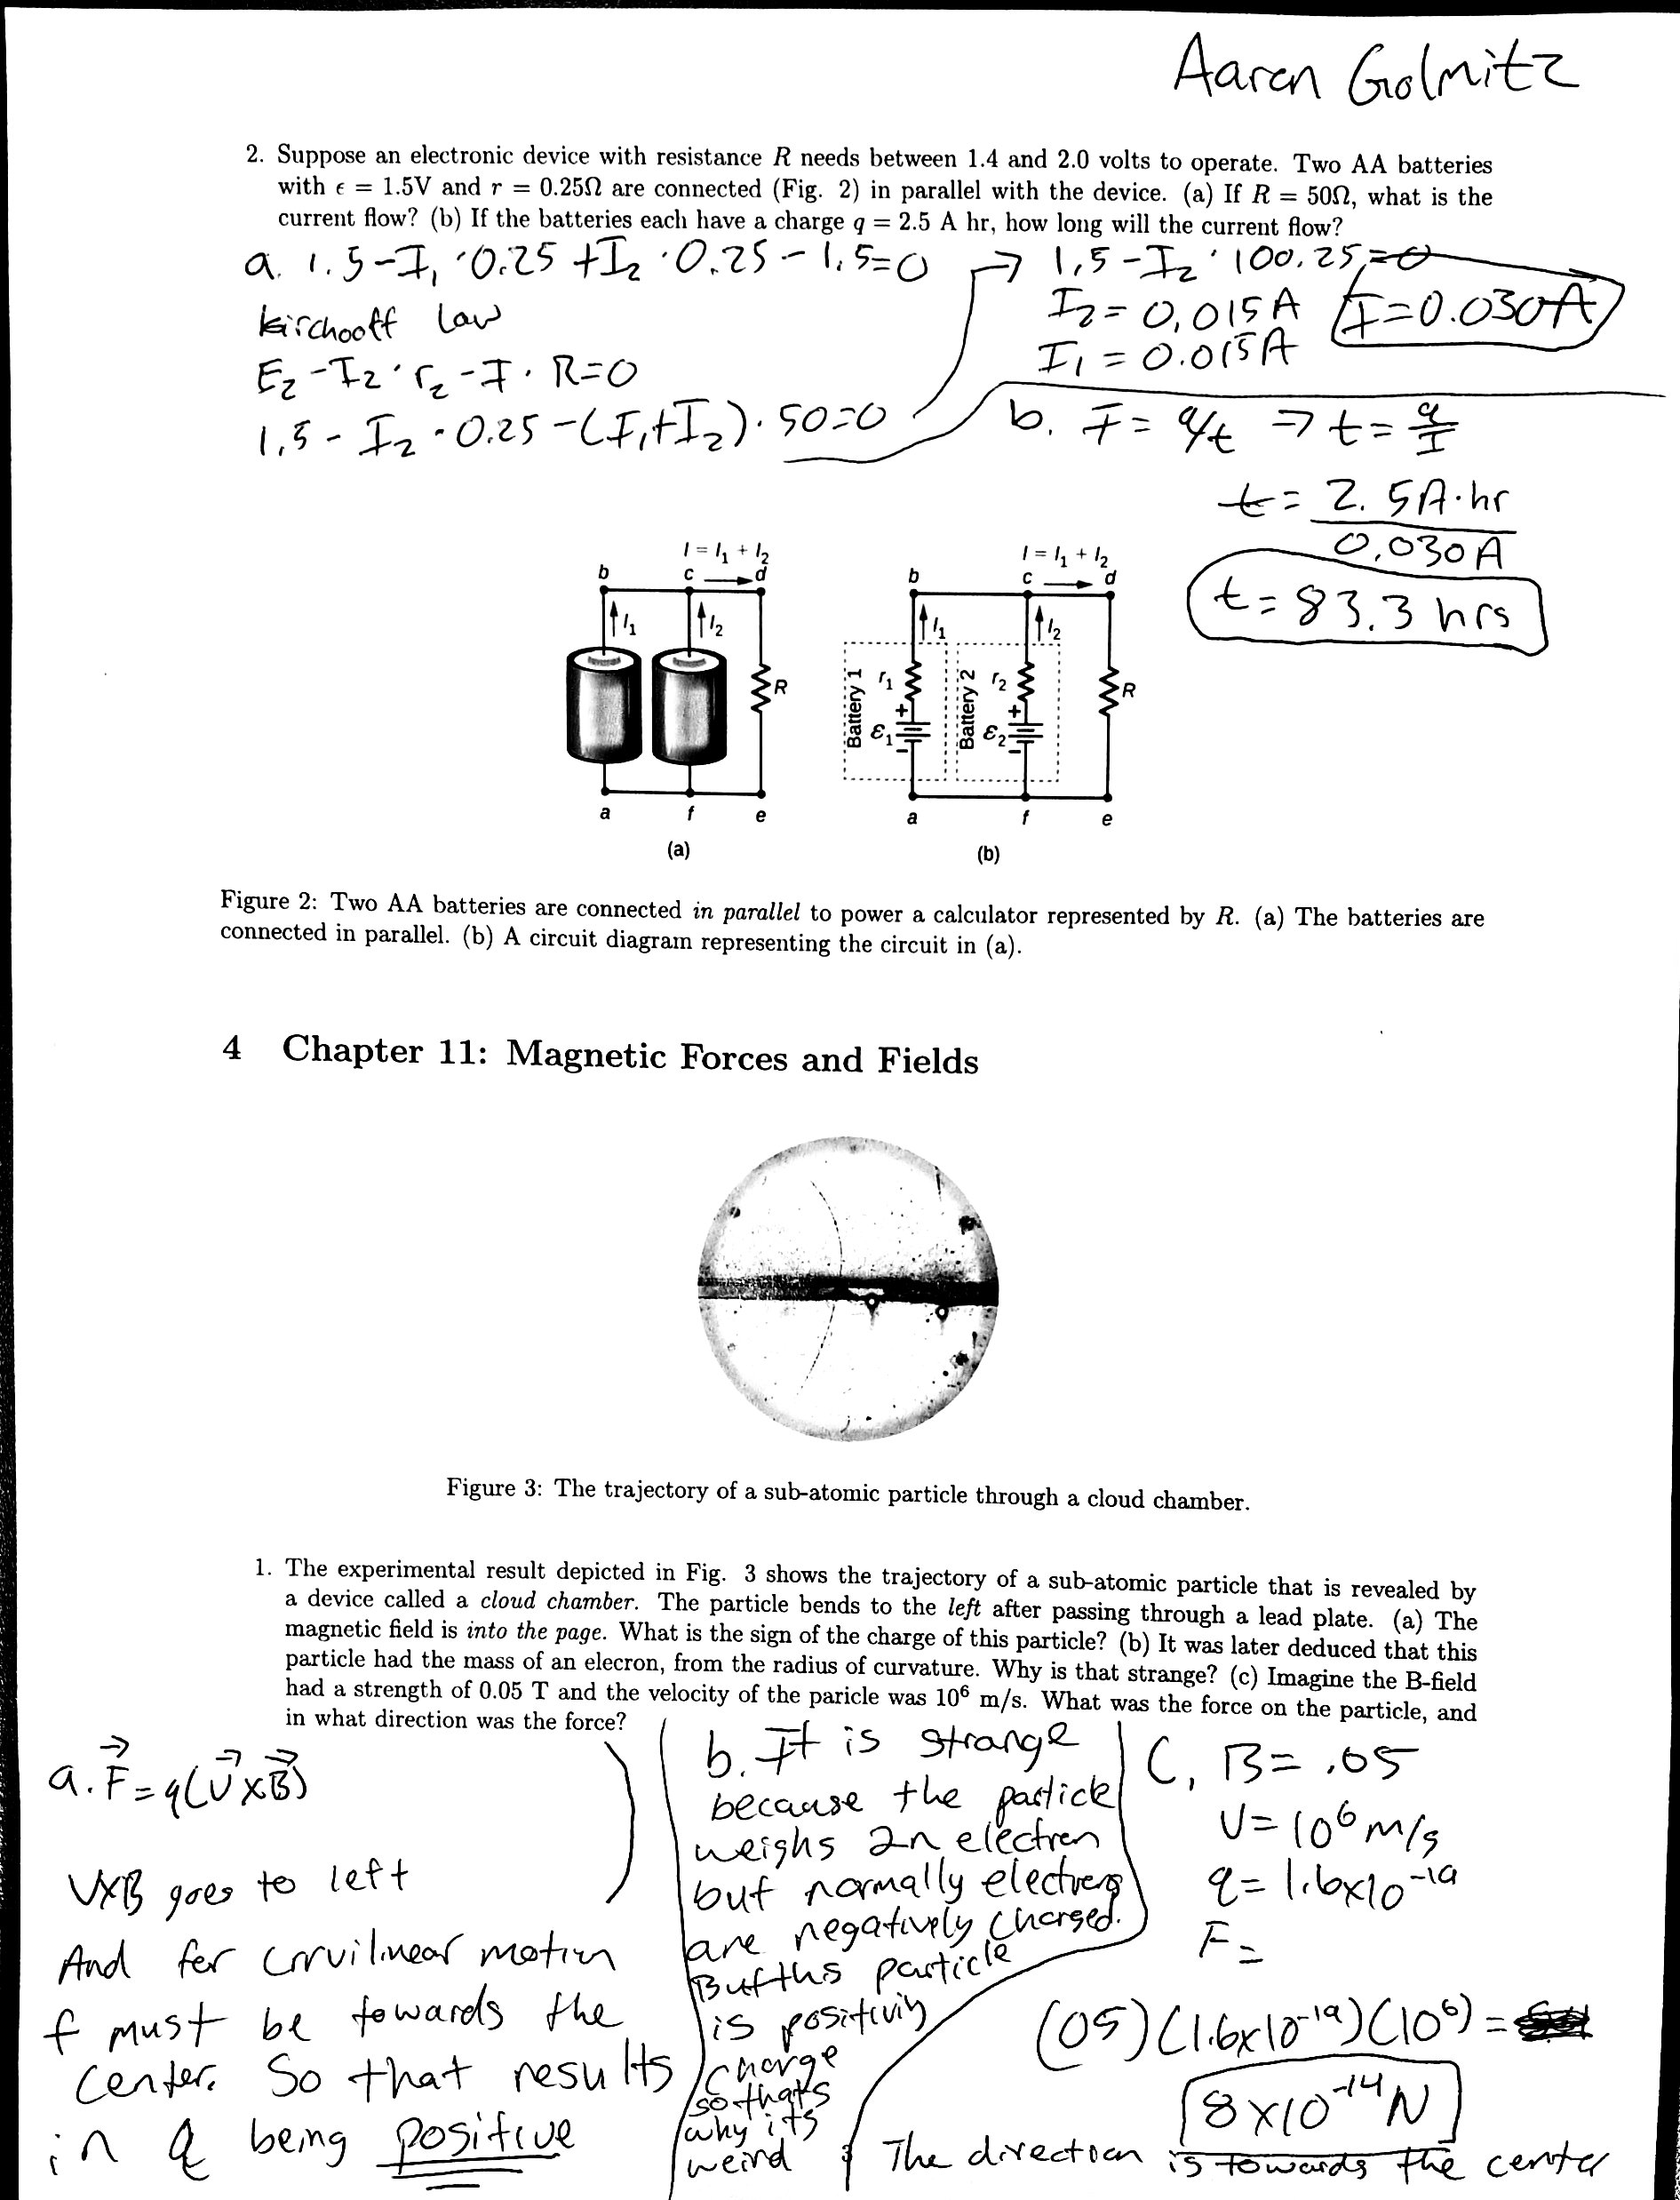 Aaren Golmitz
2. Suppose an electronic device with resistance R needs between 1.4 and 2.0 volts to operate. Two AA batteries
with ϵ = 1.5V and r = 0.25Ω are connected (Fig. 2) in parallel with the device. (a) If R = 50Ω, what is the
current flow? (b) If the batteries each have a charge q = 2.5 A hr, how long will the current flow?
a. 1.5-I₁·0.25+I₂·0.25-1.5=0
kirchooff Law
E₂-I₂·r₂-I·R=0
1.5-I₂·0.25-(I₁+I₂)·50=0
→ 1.5-I₂·100.25=0
I₂=0.015A
I=0.030A
I₁=0.015A
b. I=q/t ⇒ t=q/I
t=2.5A·hr
0.030A
t=83.3 hrs
I = I₁ + I₂
b c d
I₁ I₂
R
a f e
(a)
I = I₁ + I₂
b c d
I₁ I₂
Battery 1 r₁ + ε₁ -
Battery 2 r₂ + ε₂ -
R
a f e
(b)
Figure 2: Two AA batteries are connected in parallel to power a calculator represented by R. (a) The batteries are
connected in parallel. (b) A circuit diagram representing the circuit in (a).
4 Chapter 11: Magnetic Forces and Fields
Figure 3: The trajectory of a sub-atomic particle through a cloud chamber.
1. The experimental result depicted in Fig. 3 shows the trajectory of a sub-atomic particle that is revealed by
a device called a cloud chamber. The particle bends to the left after passing through a lead plate. (a) The
magnetic field is into the page. What is the sign of the charge of this particle? (b) It was later deduced that this
particle had the mass of an elecron, from the radius of curvature. Why is that strange? (c) Imagine the B-field
had a strength of 0.05 T and the velocity of the paricle was 10⁶ m/s. What was the force on the particle, and
in what direction was the force?
a. F⃗=q(v⃗×B⃗)
V×B goes to left
And for crrvilinear motion
f must be towards the
center. So that results
in q being positive
b. It is strange
because the particle
weighs an electron
but normally electrens
are negatively charged.
But this particle
is positivly
charge
so thats
why its
weird
C, B= .05
V=10⁶ m/s
q=1.6x10⁻¹⁹
F=
(05)(1.6x10⁻¹⁹)(10⁶)=
8x10⁻¹⁴N
The direction is towards the center